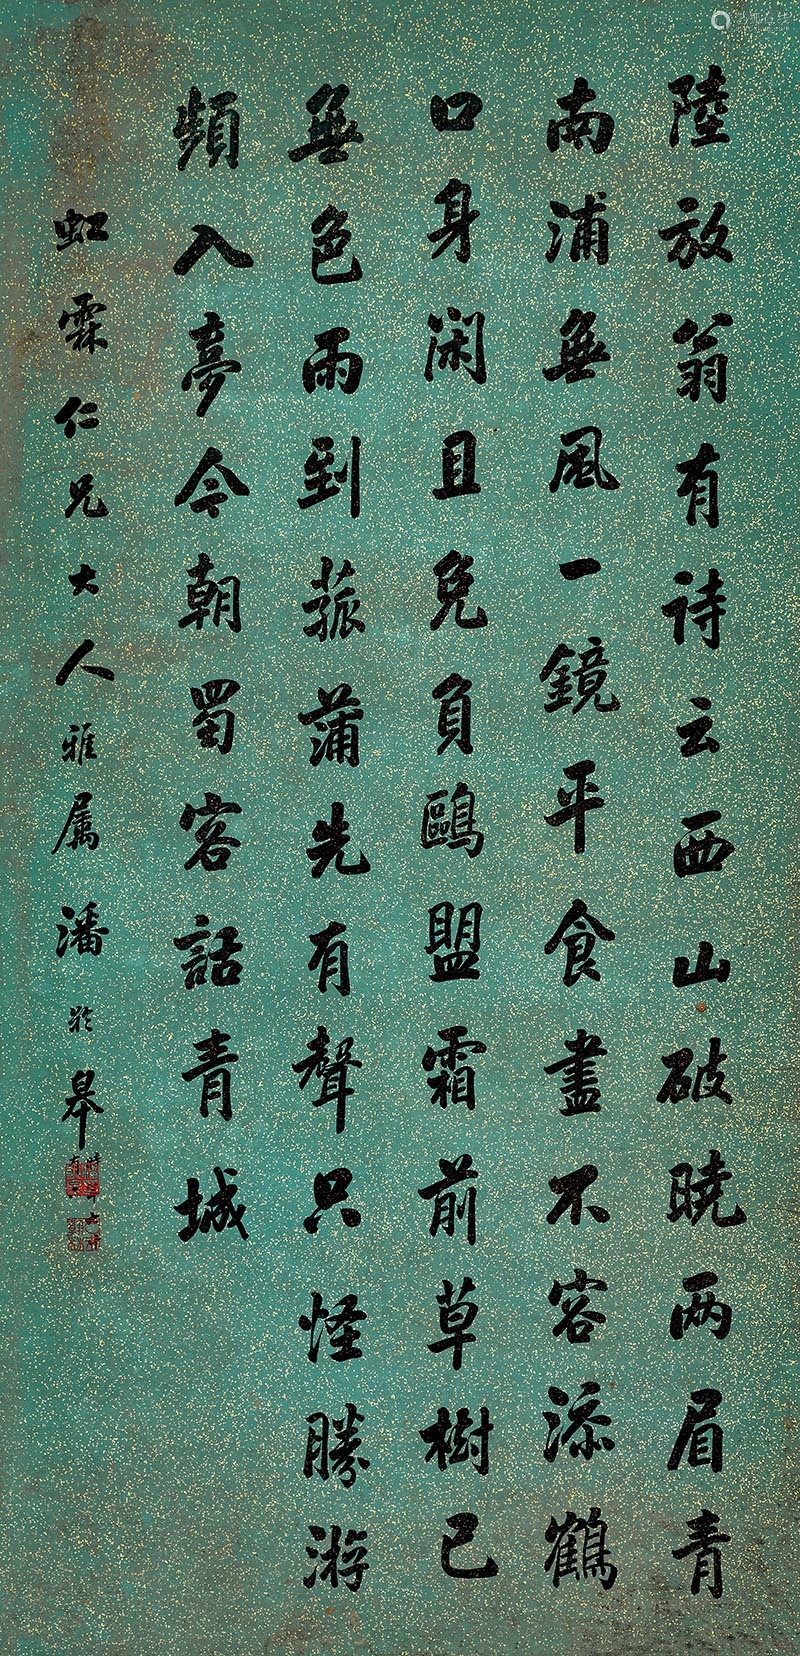 陸放翁有诗云西山破曉两眉青
南浦無風一鏡平食盡不容添鶴
口身闲且免負鷗盟霜前草樹已
無色雨到菰蒲先有聲只怪勝游
頻入夢今朝蜀客話青城
虹霖仁兄大人雅属潘齡皋時年六十有